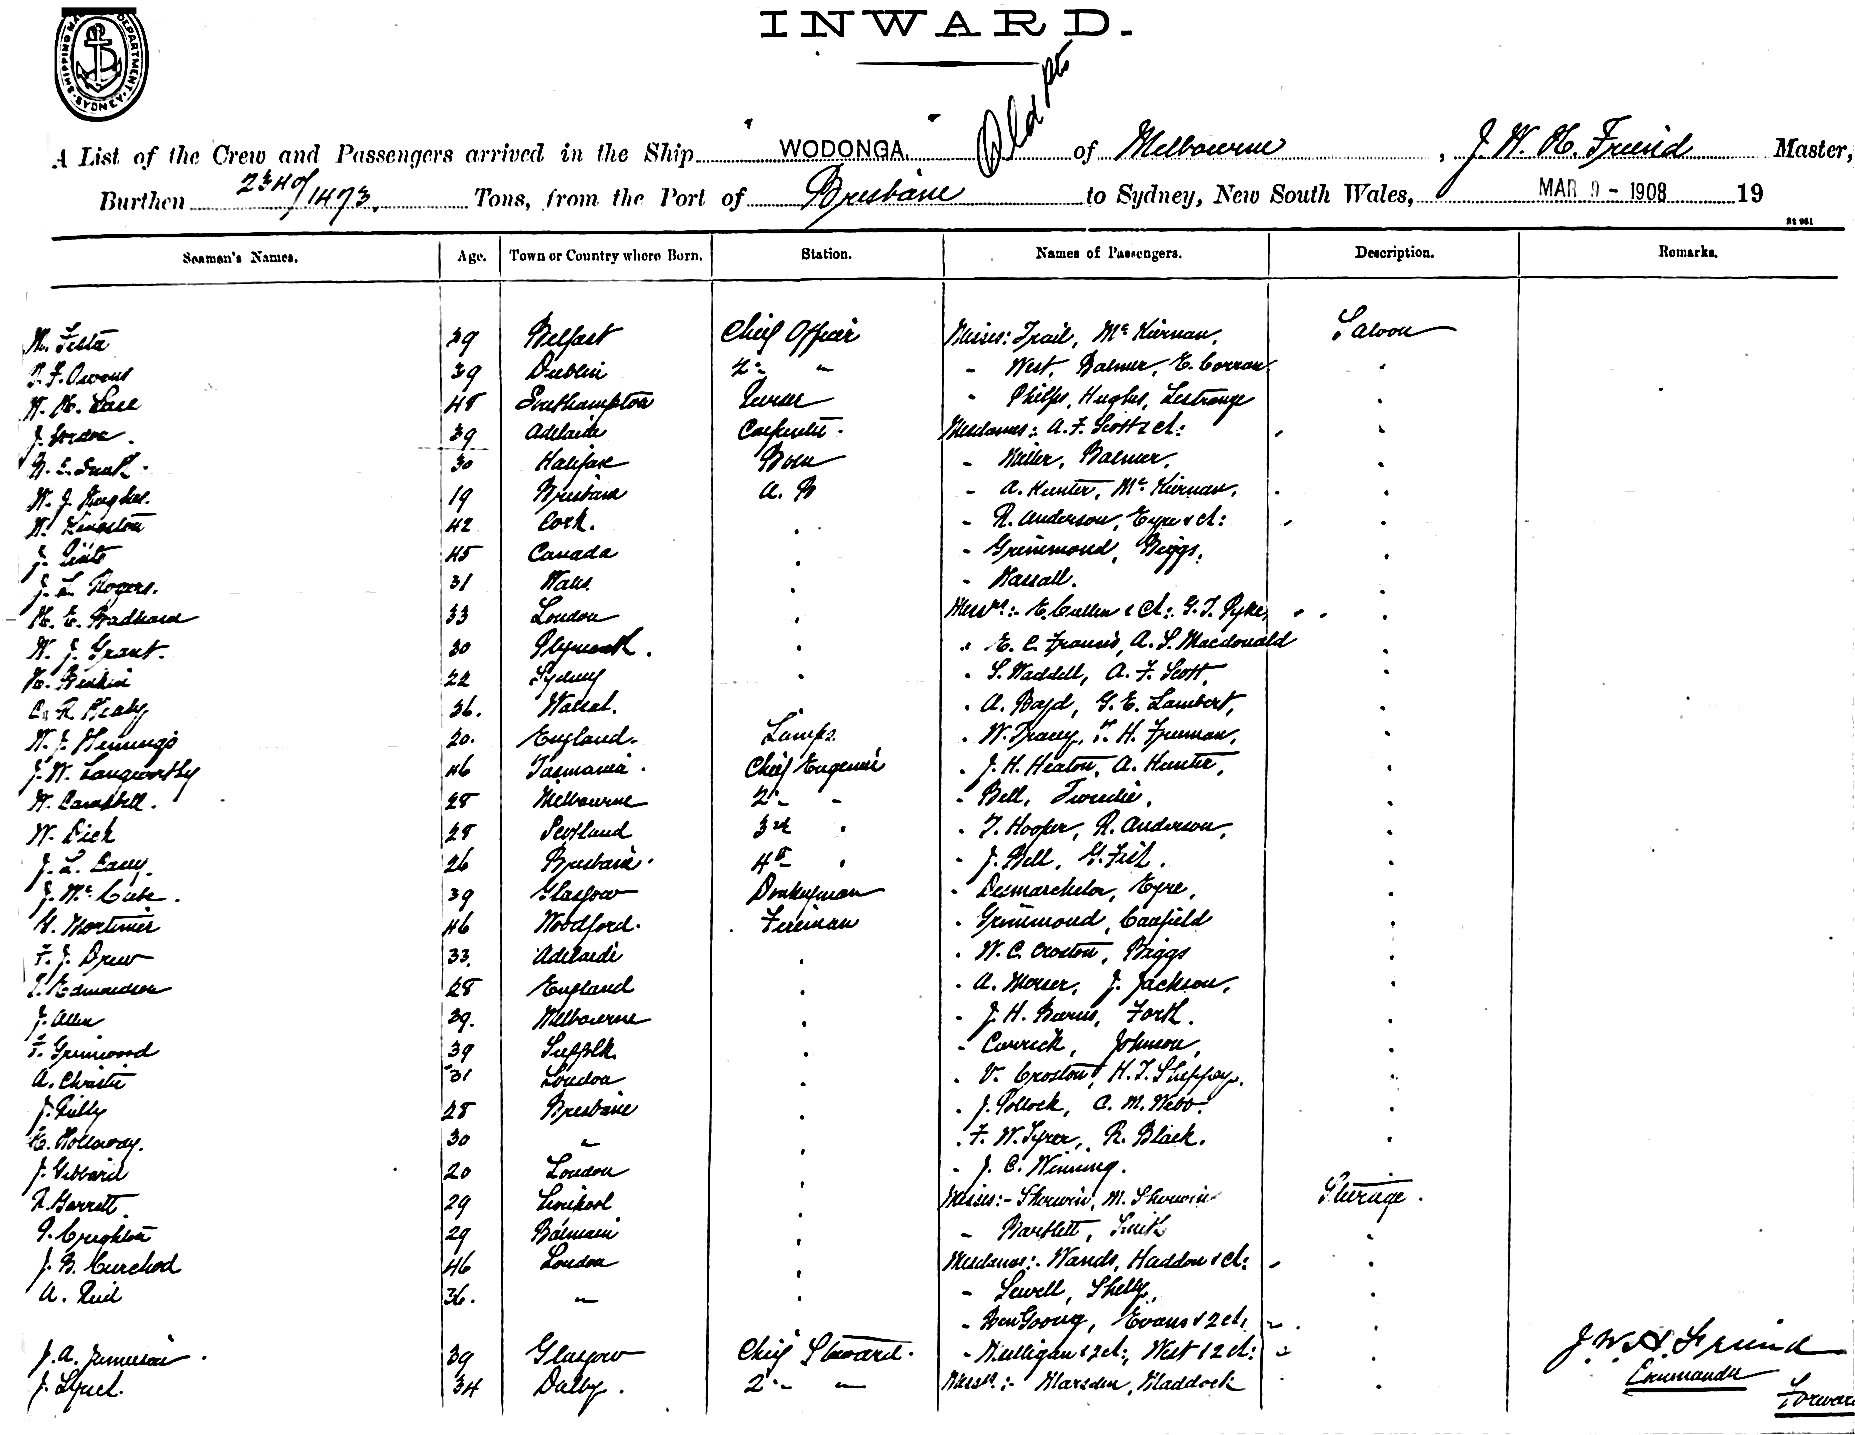 INWARD.
SHIPPING MA DEPARTMENT. SYDNEY.
Old
A List of the Crew and Passengers arrived in the Ship " WODONGA. " of Melbourne , J. W. H. Friend Master,
Burthen 2340/1473. Tons, from the Port of Brisbane to Sydney, New South Wales, MAR 9 - 1908 19
Seaman's Names. Age. Town or Country where Born. Station. Names of Passengers. Description. Remarks.
39 Belfast Chief Officer Misses: Trail, McKiernan, Saloon
T. F. Owens 39 Dublin 2nd " " West, Balmer, E. Corran.
W. H. Case 48 Southampton Purser " Philps, Hughes, Lestrange
J. Gordon. 39 Adelaide Carpenter. Mesdames: A. F. Scott & ch:
30 Halifax Bosn " Miller, Balmer,
W. J. Hughes. 19 Brisbane A. B " A. Hunter, McKiernan.
42 Cork. " R. Anderson, Eyre & ch:
J. 45 Canada " Grimmond, Biggs,
J. L. Rogers. 31 Wales " Hassall.
H. E. 33 London Messrs:- E. Cullen & Ch: G. T. Pyke,
W. J. Grant. 30 Plymouth. " E. C. Francis, A. S. Macdonald
22 Sydney " S. Waddell, A. F. Scott,
C. R. 36. Walsal. " A. Boyd, G. E. Lambert,
W. J. Hennings 20. England. Lamps. " W. Tracey, T. H. Freeman,
J. W. Langworthy 46 Tasmania. Chief Engineer " J. H. Heaton, A. Hunter,
W. Campbell. 28 Melbourne 2nd " " Bell, Tweedie,
W. Dick 28 Scotland 3rd " " T. Hooper, R. Anderson,
J. L. 26 Brisbane. 4th " " J. Bell, G. Fish.
J. McCabe. 39 Glasgow Donkeyman " Desmarchelor, Eyre,
G. Mortimer 46 Woodford. Fireman " Grimmond, Caufield
F. J. Drew 33. Adelaide " W. C. Croston, Biggs
T. Edmondson 28 England " A. Moser, J. Jackson,
J. Allen 39. Melbourne " J. H. Barns, Forth.
F. Grimwood 39 Suffolk " Carrick, Johnson,
A. Christie 31 London " V. Croston, H. T. Sheppay.
J. Gilly 28 Brisbane " J. Pollock, C. M. Webb.
E. Holloway. 30 " " F. W. Tyrer, R. Black.
J. Gibbard 20 London " J. C. Winning.
R. Garrett. 29 Liverpool Misses:- Sherwin, M. Sherwin Steerage.
P. Creighton 29 Balmain " Bartlett, Smith
J. B. Curchod 46 London Mesdames:- Wands, Haddon & ch:
A. Reid 36. " " Sewell, Shelly,
" Goong, Evans & 2 ch.
J. A. Jamieson. 39 Glasgow Chief Steward. " Mulligan & 2 ch:, West & 2 ch: J. W. H. Friend
J. Lynch. 34 Dalby. 2nd " Messrs:- Marsden, Maddock Commander
Forward